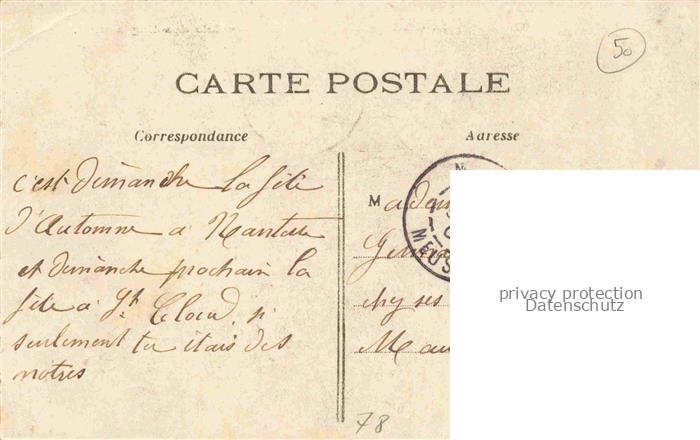 50
CARTE POSTALE
Correspondance
Adresse
c'est dimanche la fête
d'Automne a Nanterre
et dimanche prochain la
fête a St Cloud. si
seulement tu étais des
notres
Madem
chez ses
MEUS
privacy protection
Datenschutz
78